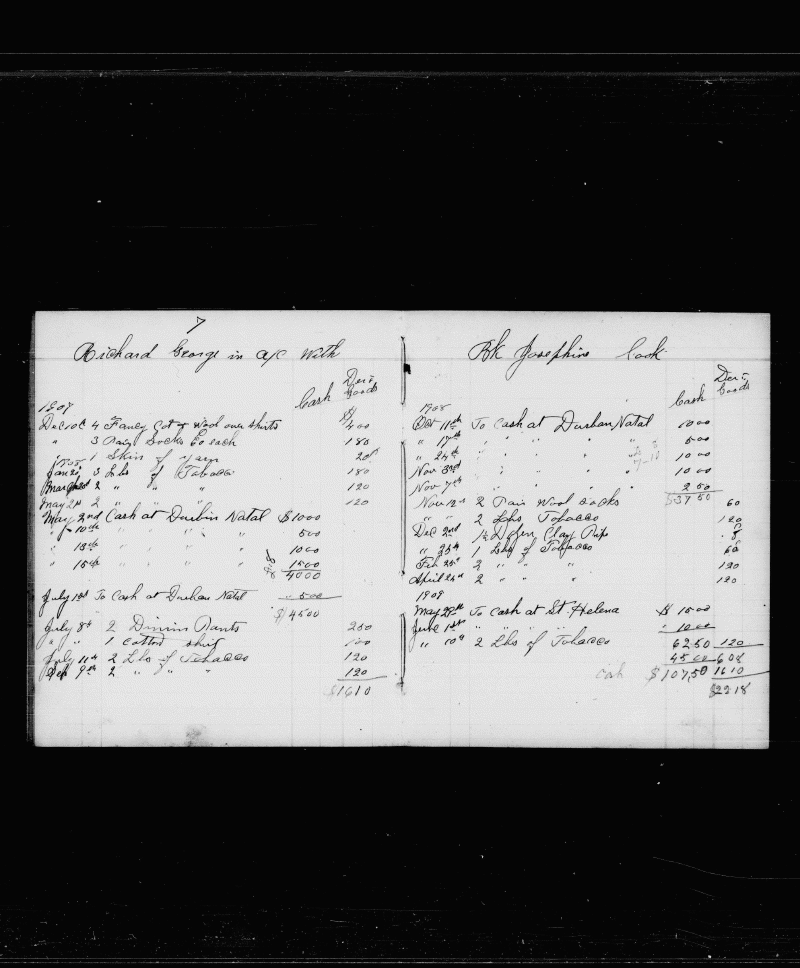 7
Richard George in a/c With
Cash Dert Goods
1907
Dec 10th 4 Fancy Cot & Wool over shirts $ 400
" 3 Pairs Socks 60 each 180
1 Skin of yarn 20
1908
Jan 20 3 Lbs of Tobacco 180
Mar 2 " " " 120
May 2nd 2 " " " 120
May 2nd Cash at Durbin Natal $1000
" 10th " " " " 500
" 13th " " " " 1000
" 15th " " " " 1500
4000
July 1st To Cash at Durban Natal 500
$4500
July 8th 2 Dinim Pants 250
" " 1 Cotton shirt 100
July 11th 2 Lbs of Tobacco 120
Sep 9th 2 " " " 120
$1610
Bk Josephine Cook
Cash Dert Goods
1908
Oct 11th To Cash at Durban Natal 1000
" 17th " " " " 500
" 24th " " " " 1000
Nov 3rd " " " " 1000
Nov 7th " " " " 250
$3750
Nov 12th 2 Pair Wool Socks 60
" " 2 Lbs Tobacco 120
Dec 2nd 1½ Dozen Clay Pips 8
" 25th 1 Lbs of Tobacco 60
Feb 25th 2 " " " 120
April 24th 2 " " " 120
1909
May 29th To Cash at St Helena $ 1500
June 1st " " " " " 1000
" 10th 2 Lbs of Tobacco 6250 120
4500 608
Cash $10750 1610
$2218